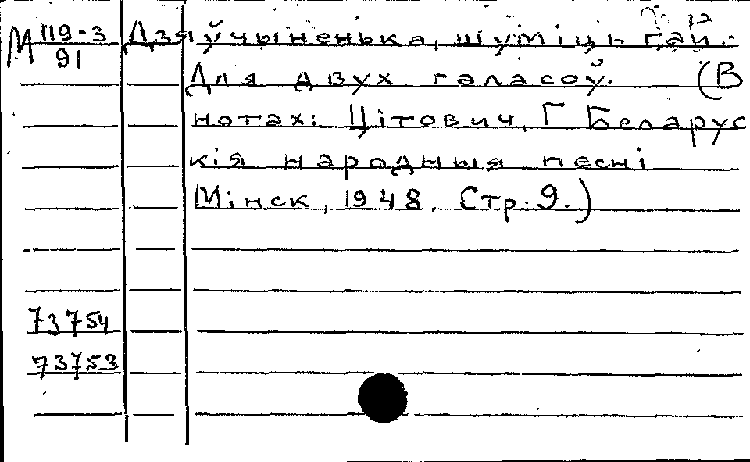 М 119-3 Дзяўчыненька, шуміць гай.
91
Для двух галасоў. (В
нотах: Цітович, Г Беларус
кія народныя песні
Мінск, 1948. Стр. 9.)
73754
73753